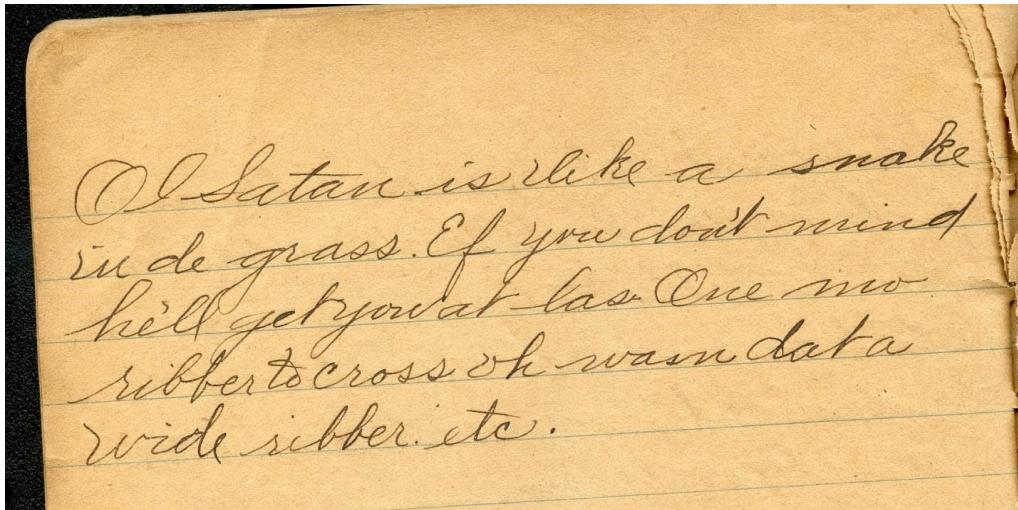 Ol Satan is like a snake
in de grass. Ef you don't mind
he'll get you at las. One mo
ribber to cross oh wasn dat a
wide ribber. etc.